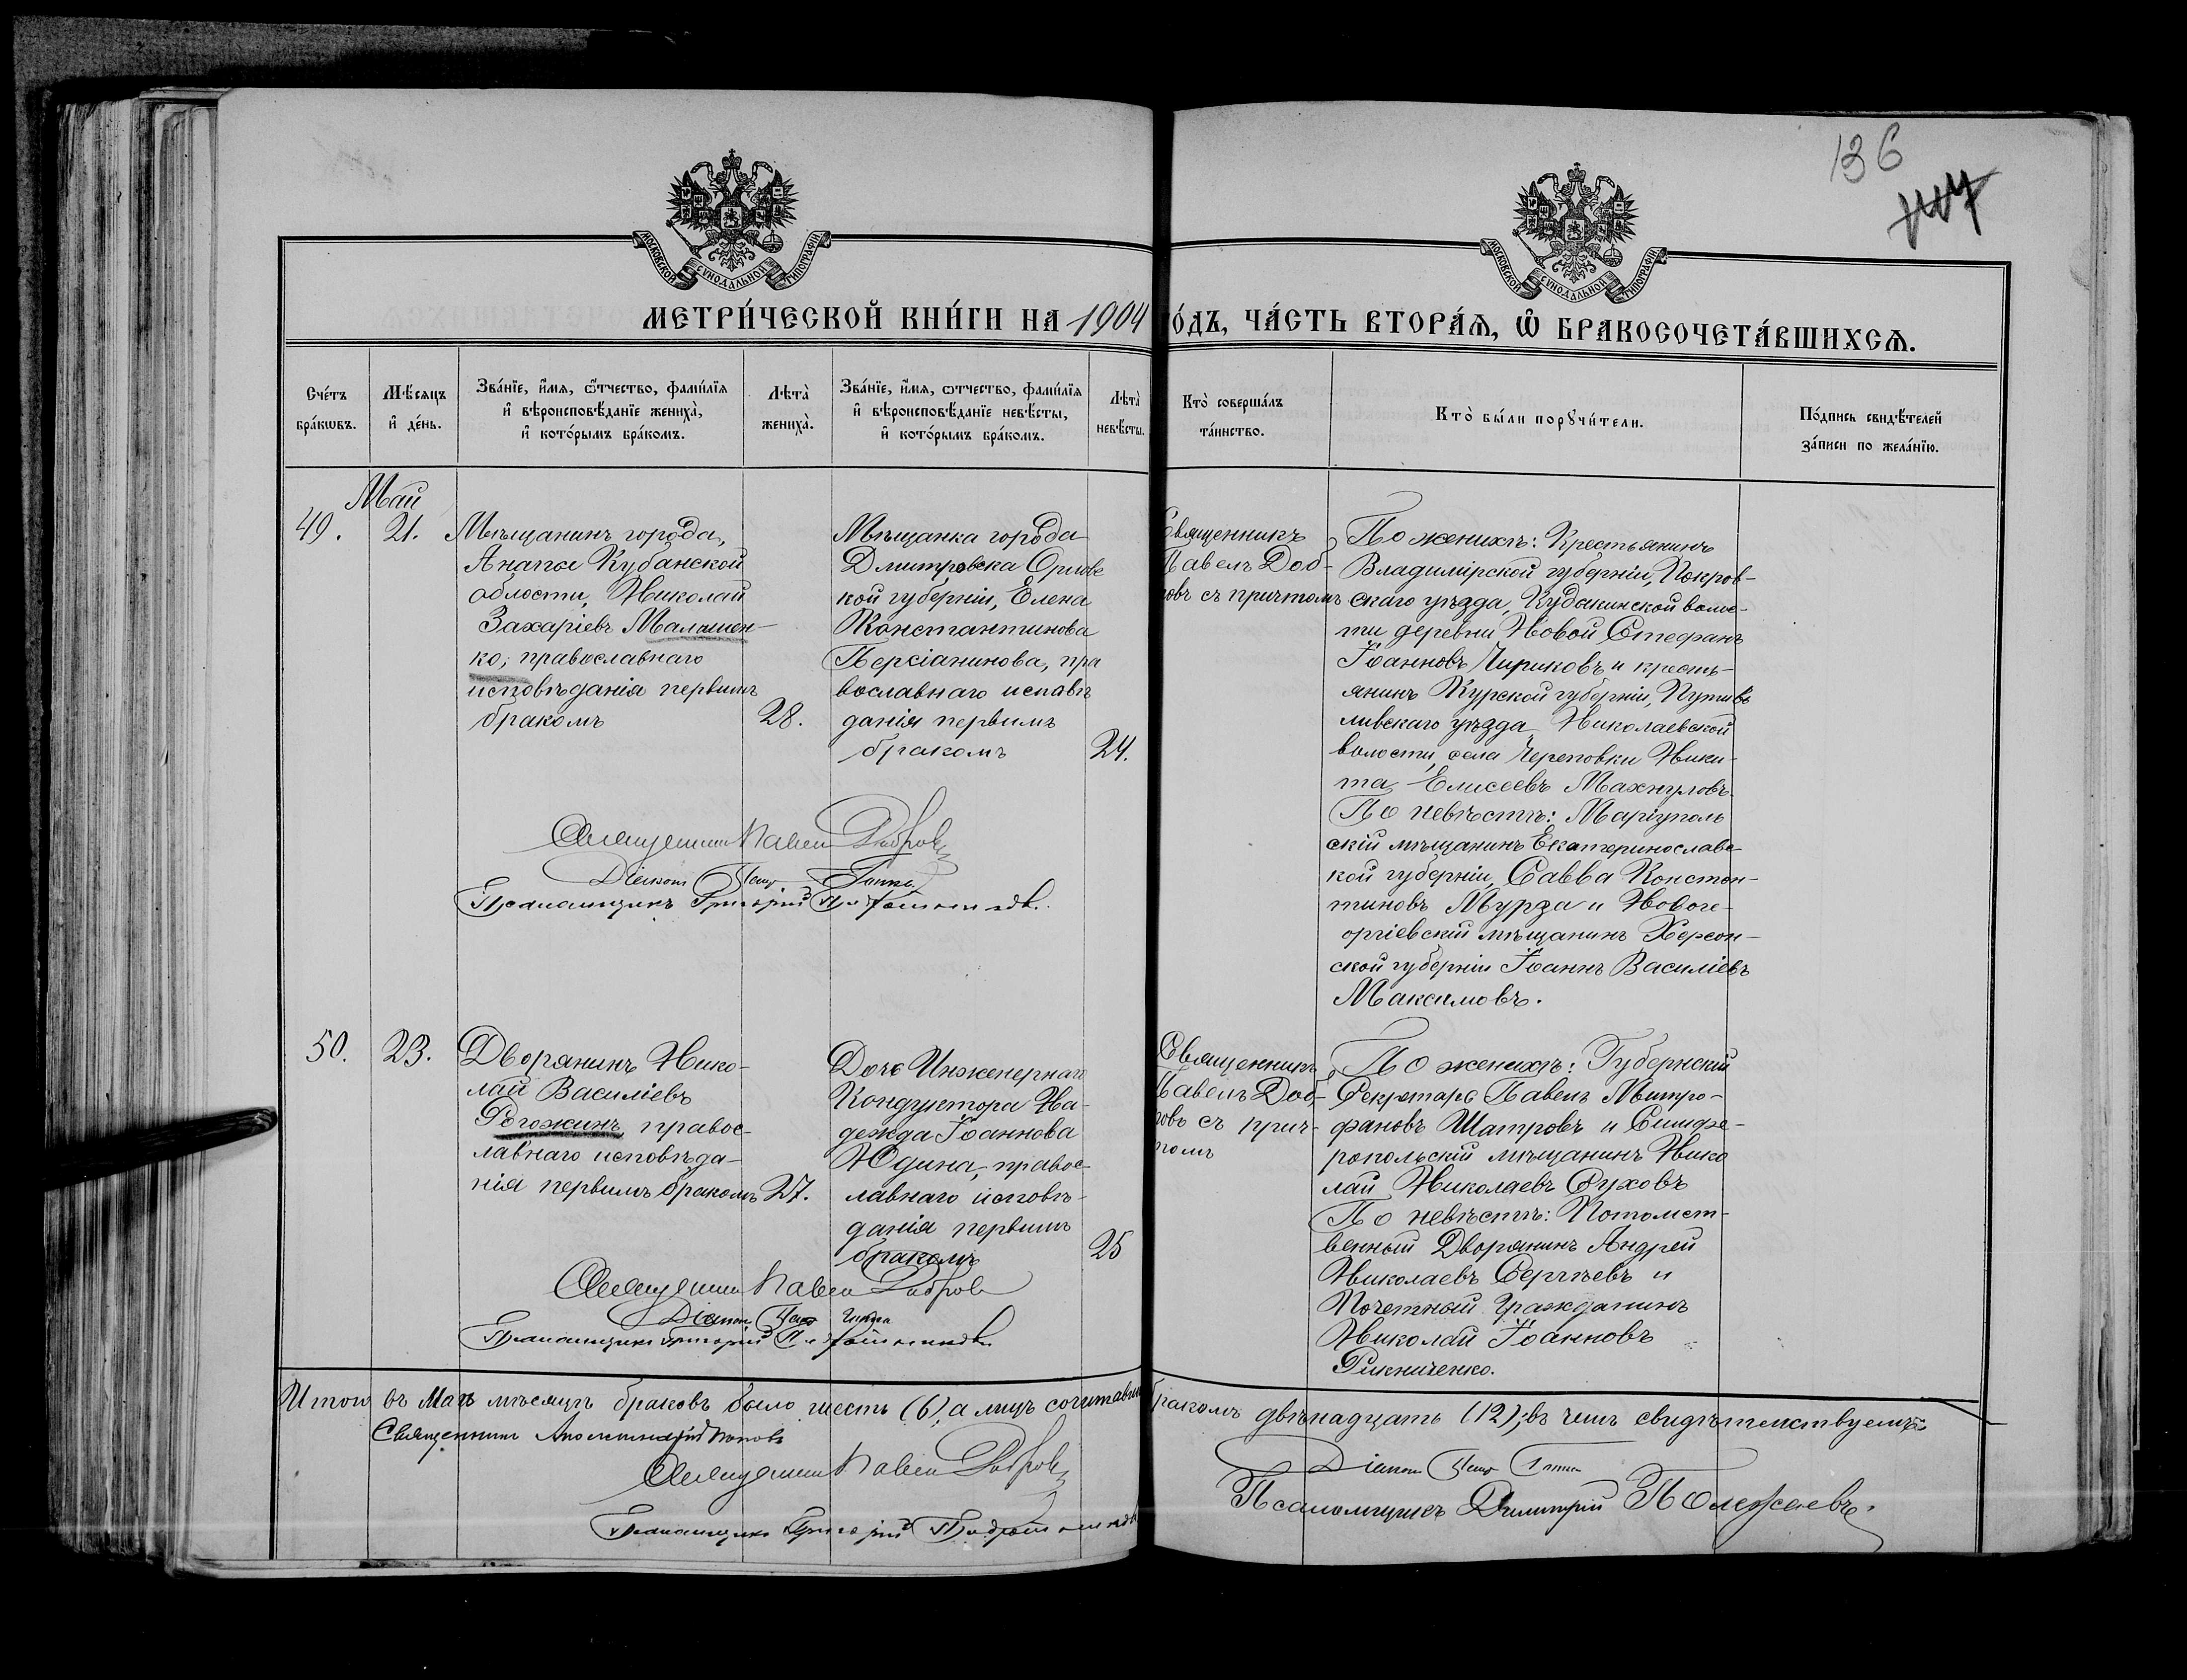 136
МОСКОВСКОЙ СУНОДАЛЬНОЙ ТИПОГРАФІИ
МОСКОВСКОЙ СУНОДАЛЬНОЙ ТИПОГРАФІИ
МЕТРИ́ЧЕСКОЙ КНИ́ГИ НА 1904 ГО́ДЪ, ЧА́СТЬ ВТОРА́Ѧ, Ѽ БРАКОСОЧЕТА́ВШИХСѦ.
Сче́тъ
бра́кѡвъ.
Мѣ́сяцъ
и҆ де́нь.
Зва́нїе, и҆́мя, ѻ҆́тчество, фами́лїя
и҆ вѣроисповѣ́данїе жениха̀,
и҆ кото́рымъ бра́комъ.
Лѣта̀
жениха̀.
Зва́нїе, и҆́мя, ѻтчество, фами́лїя
и҆ вѣроисповѣ́данїе невѣ́сты,
и҆ кото́рымъ бра́комъ.
Лѣта̀
невѣ́сты.
Кто̀ соверша́лъ
та́инство.
Кто̀ бы́ли порꙋчи́тели.
По́дпись свидѣ́телей
за́писи по жела́нїю.
Май
49.
21.
Мѣщанинъ города,
Анапы Кубанской
области, Николай
Захаріевъ Малышен-
ко, православнаго
исповѣданія первымъ
бракомъ
28.
Мѣщанка города
Дмитровска Орловс
кой губерніи, Елена
Константинова
Персіанинова, пра
вославнаго исповѣ
данія первымъ
бракомъ
24.
Священникъ
Павелъ Доб-
ровъ съ причтомъ
По женихѣ: Крестьянинъ
Владимірской губерніи, Покров-
скаго уѣзда, Кудыкинской волос-
ти деревни Новой Стефанъ
Іоанновъ Чириковъ и кресть-
янинъ Курской губерніи, Путив
ливскаго уѣзда Николаевской
волости, села Череповки Ники-
та Елисеевъ Махнуловъ.
По невѣстѣ: Маріуполь
скій мѣщанинъ Екатеринославс
кой губерніи, Савва Констан-
тиновъ Мурза и Новоге-
оргіевскій мѣщанинъ Херсон-
ской губерніи Іоаннъ Василіевъ
Максимовъ.
Священникъ Павелъ Добровъ
Діаконъ
Псаломщикъ Григорій
50.
23.
Дворянинъ Нико-
лай Василіевъ
Рогожинъ правос-
лавнаго исповѣда-
нія первымъ бракомъ
27.
Дочь Инженернаго
Кондуктора На-
дежда Іоаннова
Юдина, правос-
лавнаго исповѣ-
данія первымъ
бракомъ
25
Священникъ
Павелъ Доб-
ровъ съ прич-
томъ
По женихѣ: Губернскій
Секретарь Павелъ Митро-
фановъ Шатровъ и Симфе-
ропольскій мѣщанинъ Нико
лай Николаевъ Суховъ
По невѣстѣ: Потомст-
венный Дворянинъ Андрей
Николаевъ Сергѣевъ и
Почетный Гражданинъ
Николай Іоанновъ
Рикниченко.
Священникъ Павелъ Добровъ
Діаконъ
Псаломщикъ Григорій
Итого въ Маѣ мѣсяцѣ браковъ было шесть (6), а лицъ сочетавш бракомъ двѣнадцать (12); въ чемъ свидѣтельствуемъ:
Священникъ Аполлинарій Поповъ
Священникъ Павелъ Добровъ
Псаломщикъ Григорій
Діаконъ
Псаломщикъ Димитрій Полежаевъ.